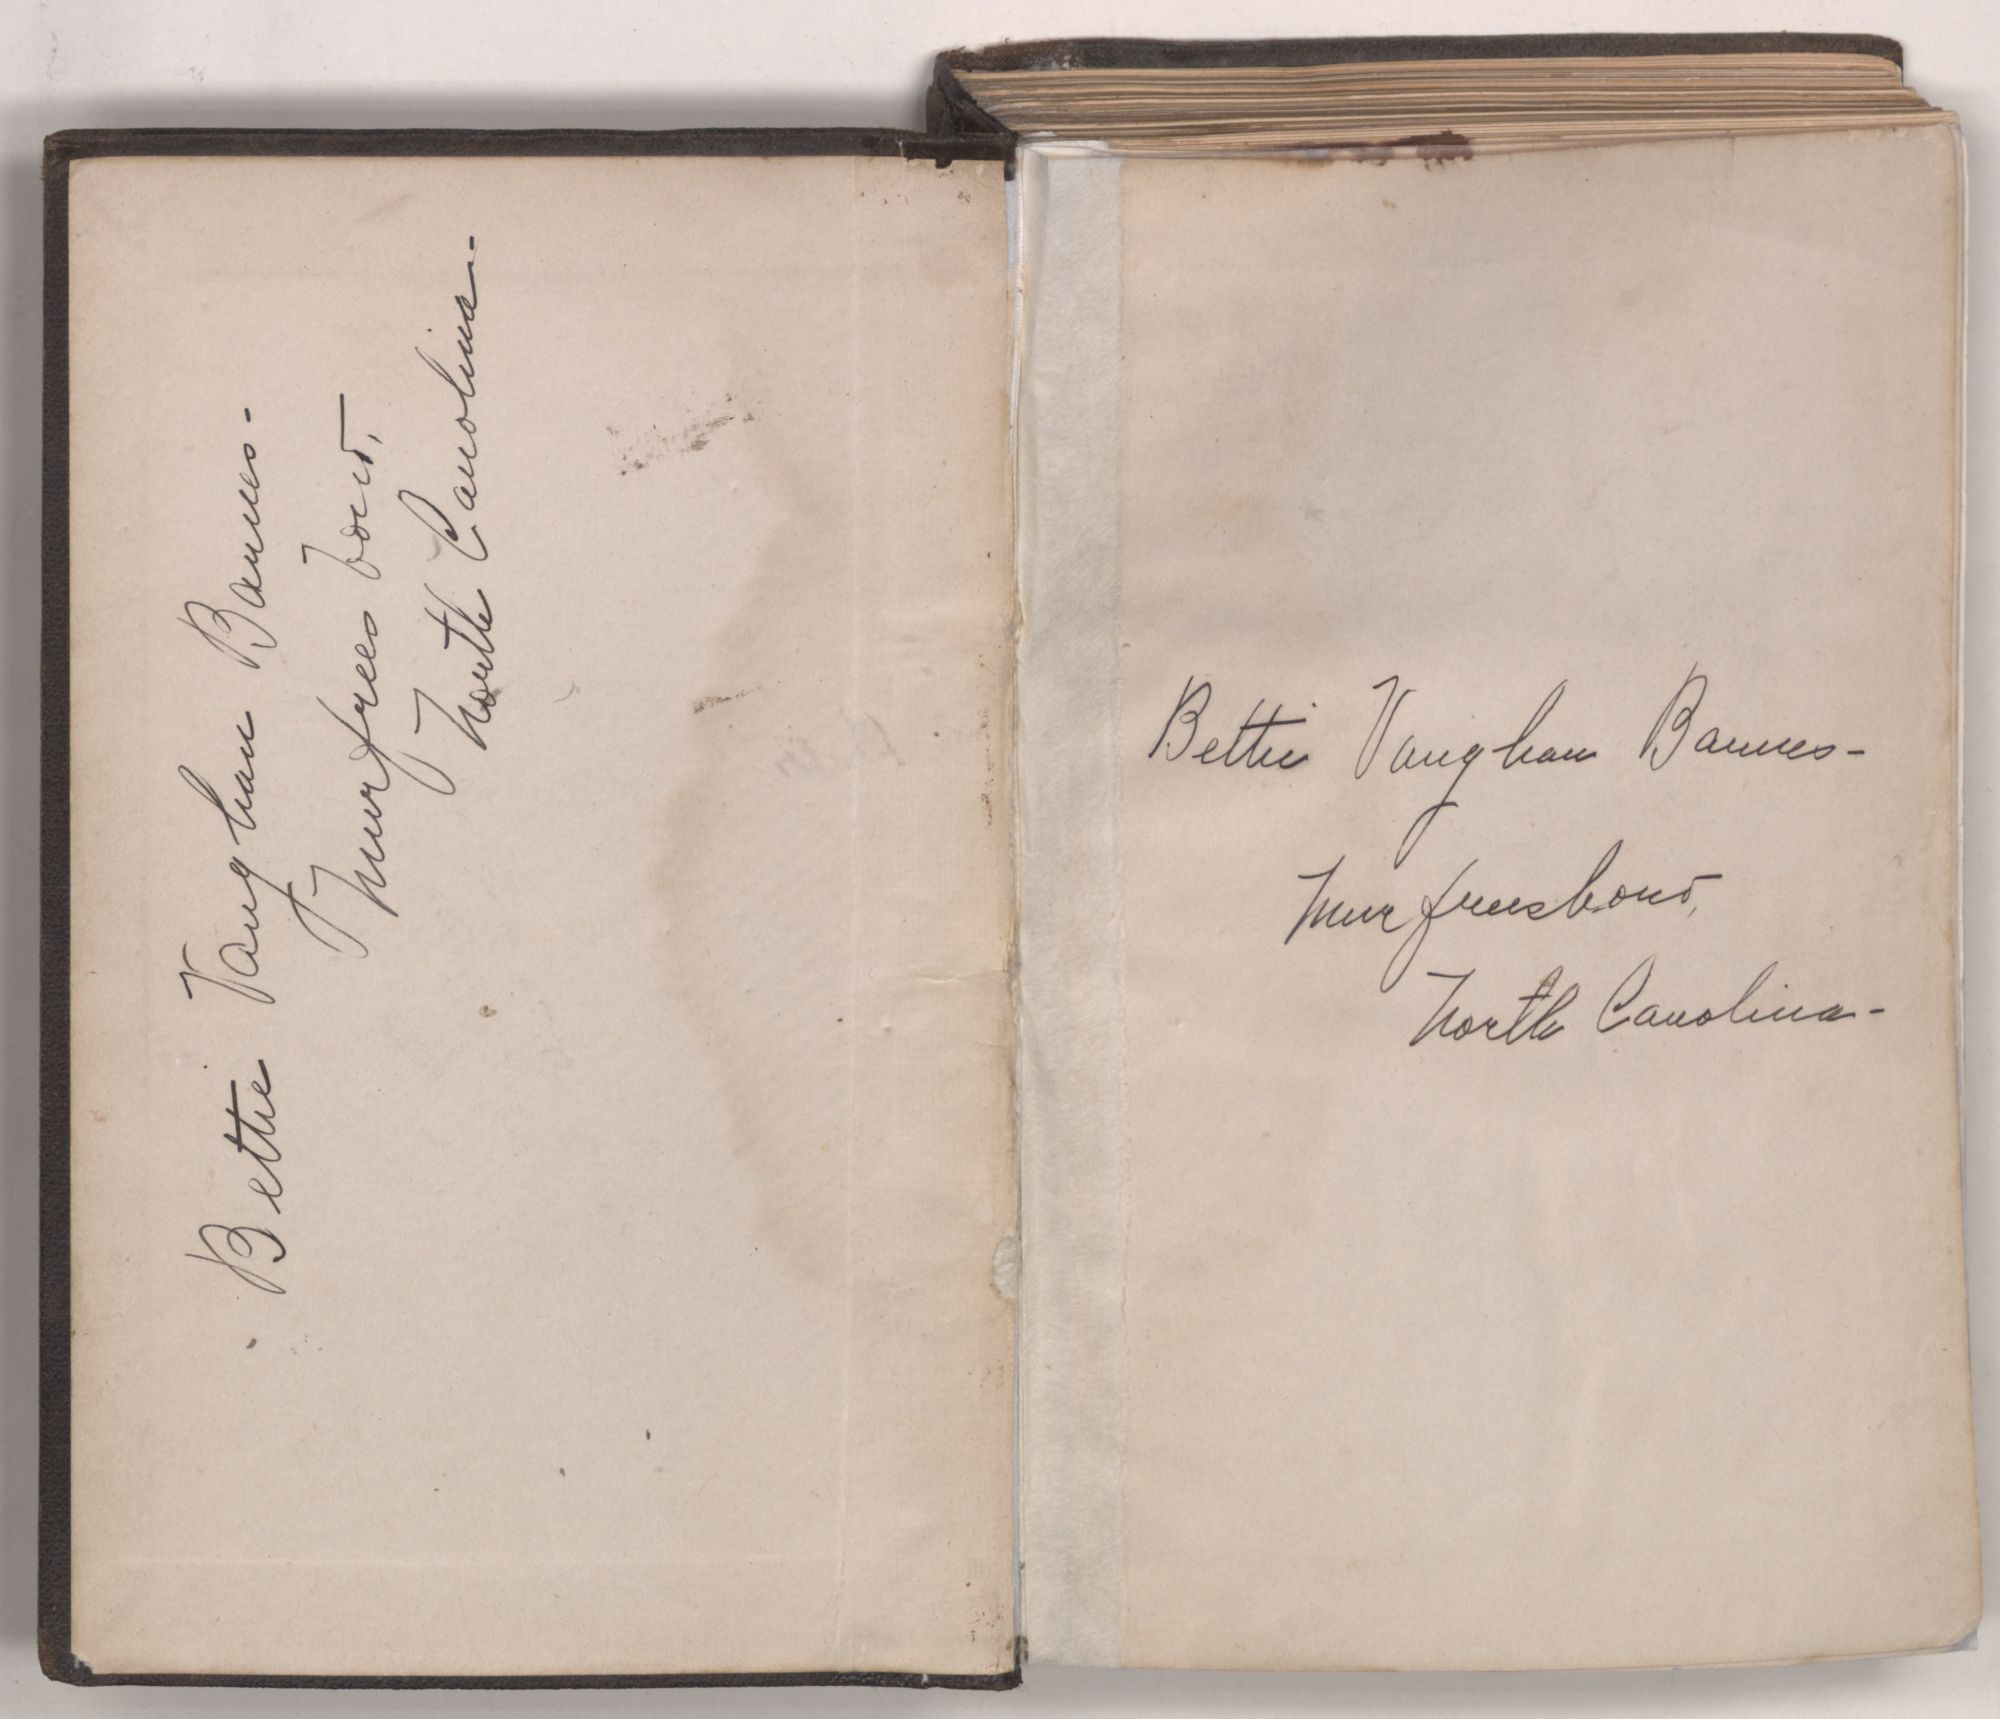 Bettie Vaughan Barnes-
Murfreesboro,
North Carolina-
Bettie Vaughan Barnes-
Murfreesboro,
North Carolina-